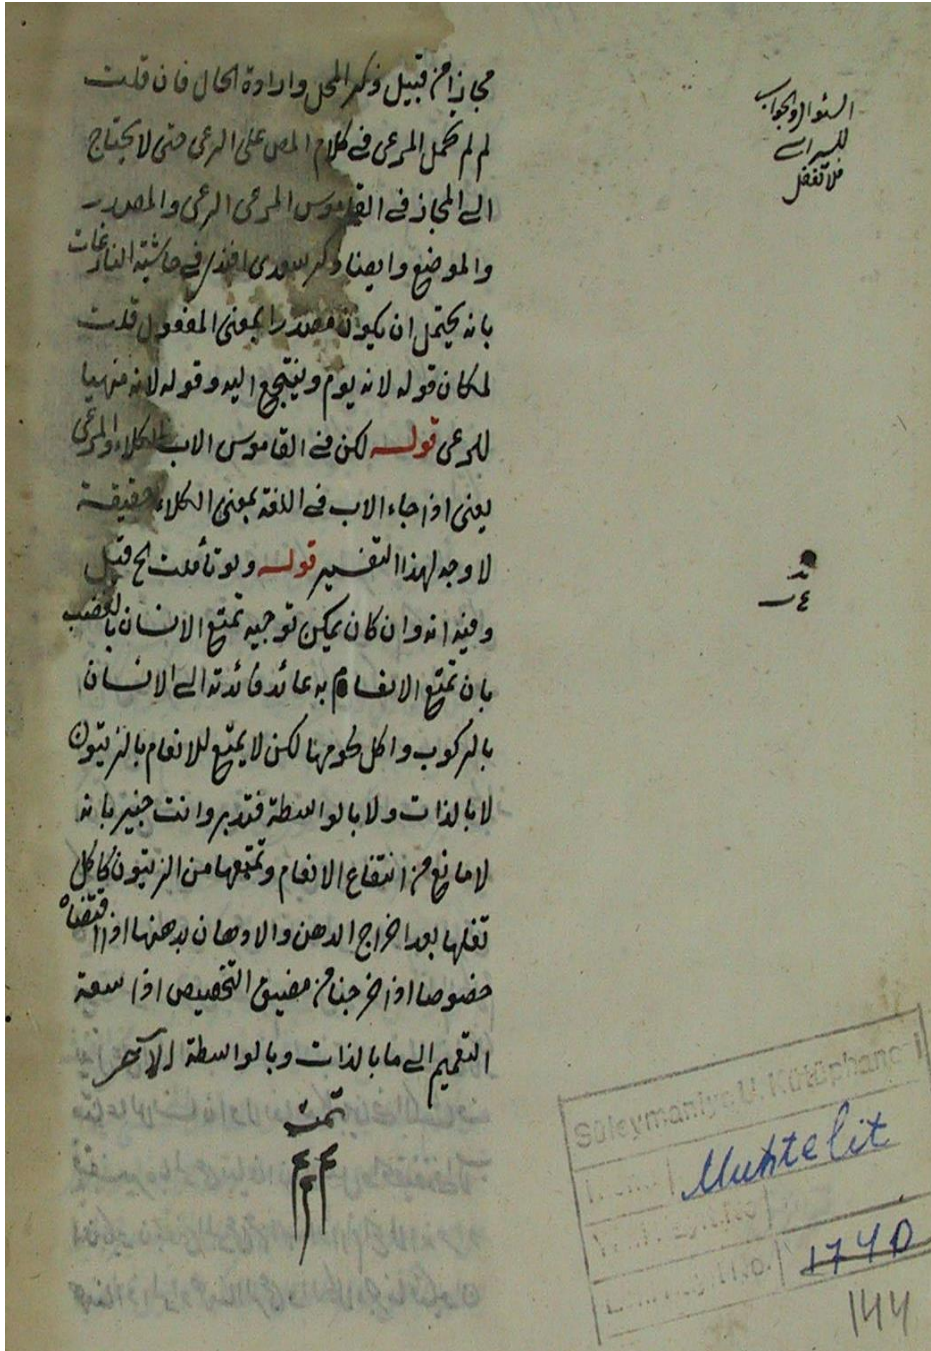 مجازا من قبيل ذكر المحل وارادة الحال فان قلت
لم لم يحمل المرعى في كلام المص على الرعى حتى لا يحتاج
الى المجاز في القاموس المرعى الرعى والمصدر
والموضع وايضا ذكر سعدى افندى في حاشية النازعات
بانه يحتمل ان يكون مصدرا بمعنى المفعول قلت
لمكان قوله لانه يوم وينتجع اليه وقوله لانه متهيا
للرعى قوله لكن في القاموس الاب الكلاء والمرعى
يعنى اذا جاء الاب في اللغة بمعنى الكلاء حقيقة
لا وجه لهذا التفسير قوله ولو تأملت الخ قيل
وفيه انه وان كان يمكن توجيه تمتع الانسان بالقضب
بان تمتع الانعام به عائد فائدته الى الانسان
بالركوب واكل لحومها لكن لا يمتع للانعام بالزيتون
لا بالذات ولا بالواسطة فتدبر وانت خبير بانه
لا مانع من انتفاع الانعام وتمتعها من الزيتون كاكل
ثفلها بعد اخراج الدهن والادهان بدهنها اذا اقتضاه
خصوصا اذا خرجنا من مضيق التخصيص اذا سعة
التعميم الى ما بالذات وبالواسطة
تمت
السئوال والجواب
فلا تغفل
Süleymaniye U. Kütüphanesi
Muhtelit
1740
144